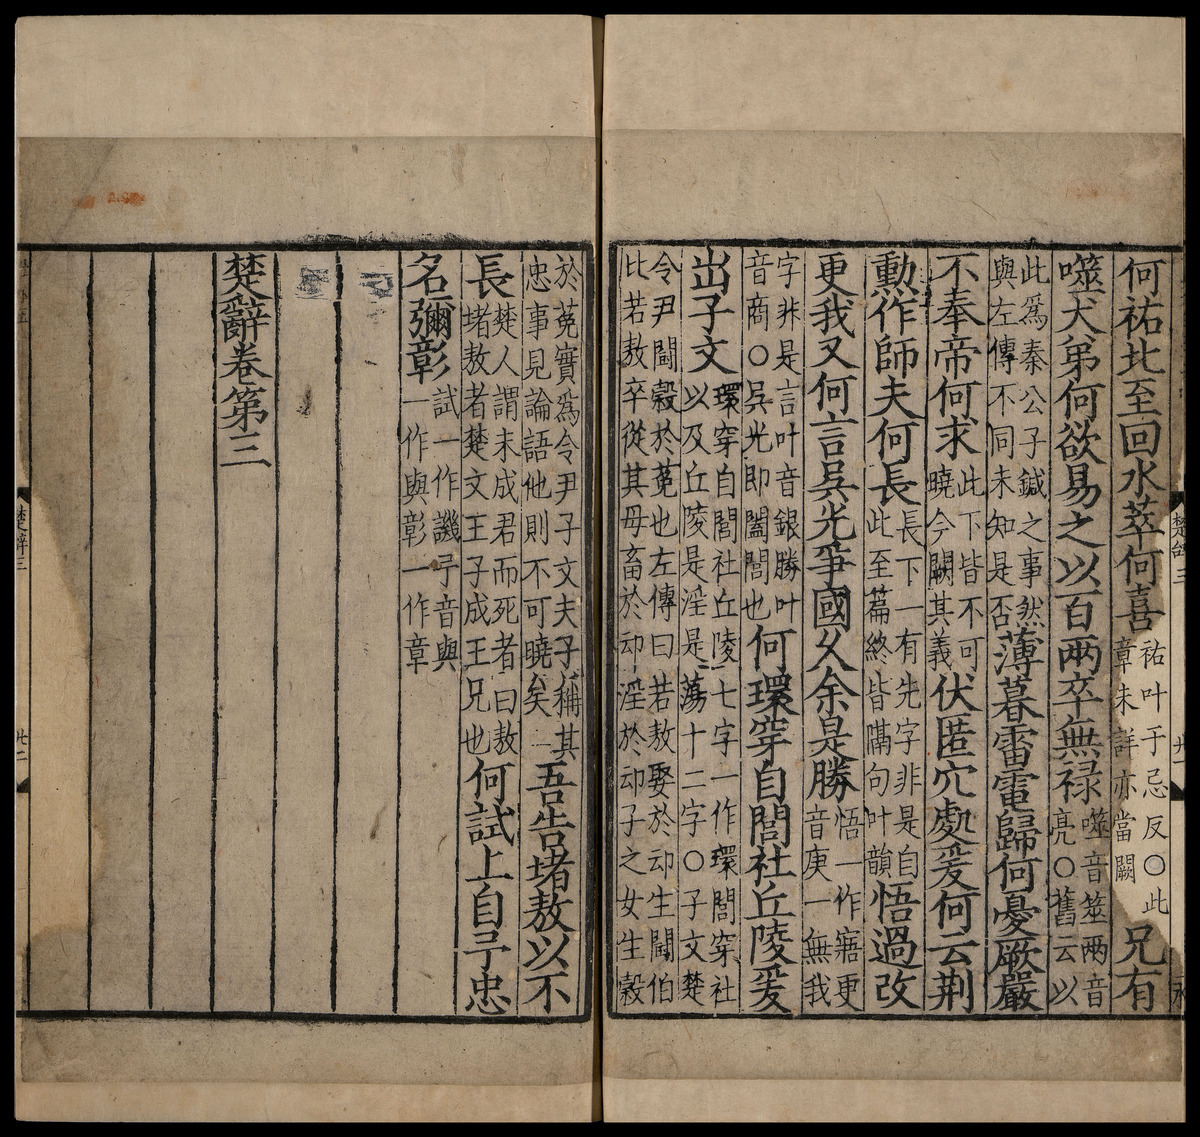 何祐北至回水萃何喜祐叶于忌反○此章未詳亦當闕兄有
噬犬弟何欲易之以百兩卒無禄噬音筮兩音亮○舊云以
此爲秦公子鍼之事然與左傳不同未知是否薄暮雷電歸何憂厥嚴
不奉帝何求此下皆不可曉今闕其義伏匿穴處爰何云荆
勲作師夫何長長下一有先字非是自此至篇終皆隔句叶韻悟過改
更我又何言吳光爭國久余是勝悟一作寤更音庚一無我
字非是言叶音銀勝叶音商○吳光即闔閭也何環穿自閭社丘陵爰
出子文環穿自閭社丘陵七字一作環閭穿社以及丘陵是淫是蕩十二字○子文楚
令尹鬭穀於菟也左傳曰若敖娶於䢵生鬭伯比若敖卒從其母畜於䢵淫於䢵子之女生穀
於菟實爲令尹子文夫子稱其忠事見論語他則不可曉矣吾告堵敖以不
長楚人謂未成君而死者曰敖堵敖者楚文王子成王兄也何試上自予忠
名彌彰試一作譏予音與一作與彰一作章
楚辭卷第三
楚辭三
廿二